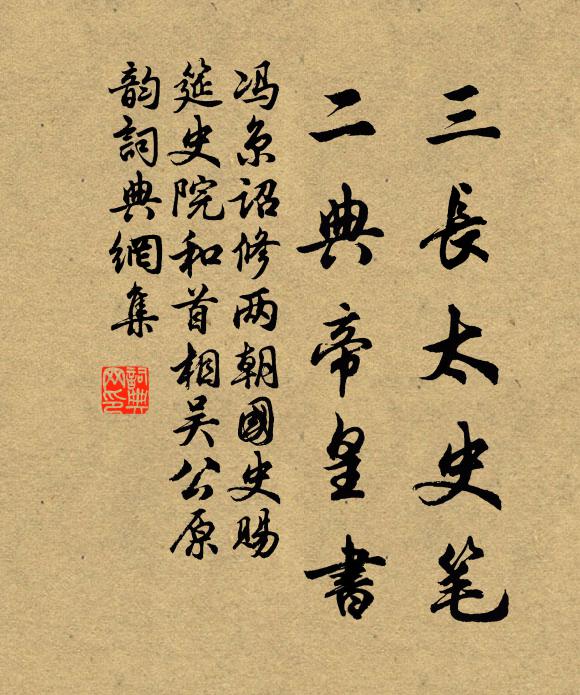 三長太史笔
二典帝皇書
冯京詔修两朝國史賜
筵史院和首相吴公原
韵詞典網集
詞典网印